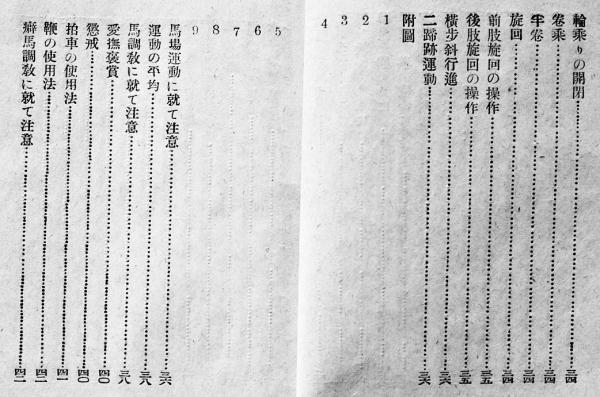 輪乘りの開閉…………三四
卷乘…………三四
半卷…………三四
旋回…………三四
前肢旋回の操作…………三五
後肢旋回の操作…………三五
橫步斜行進…………三六
二蹄跡運動…………三六
附圖
1
2
3
4
5
6
7
8
9
馬場運動に就て注意…………三六
運動の平均…………三八
馬調敎に就て注意…………三八
愛撫褒賞…………四〇
懲戒…………四〇
拍車の使用法…………四一
鞭の使用法…………四二
癖馬調敎に就て注意…………四二